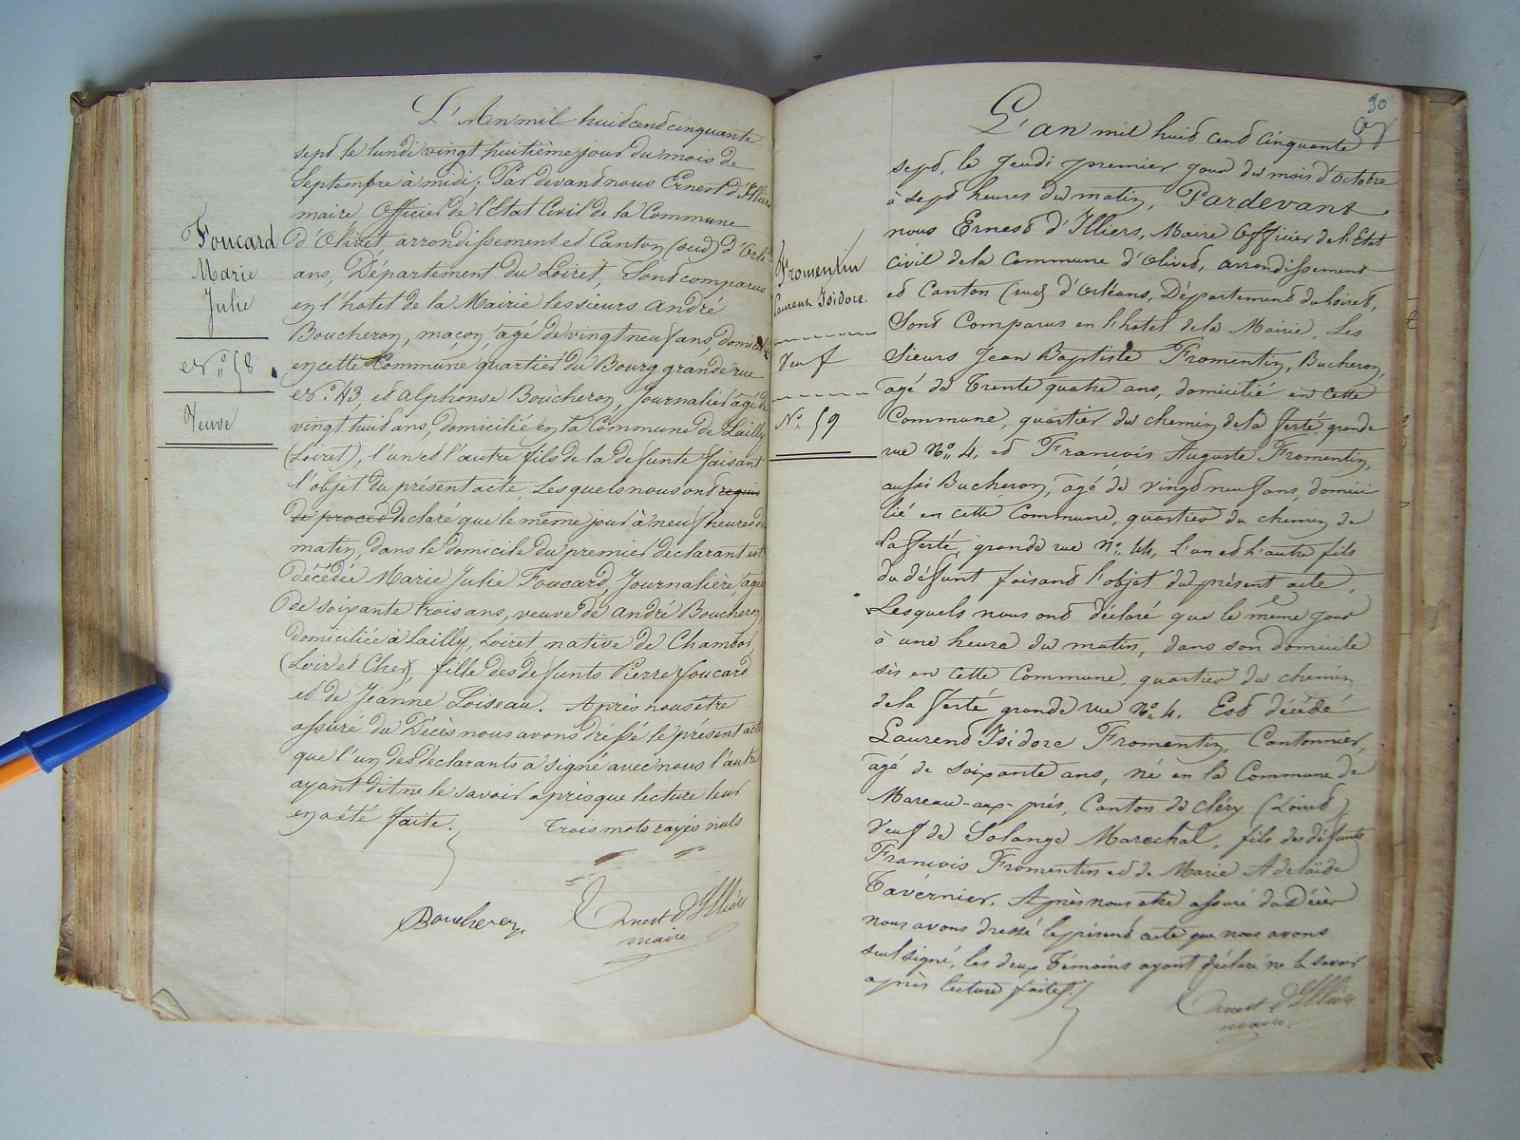 Foucard
Marie
Julie
N° 58
Veuve
L'An mil huit cent cinquante
sept le lundi vingt huitième jour du mois de
Septembre à midi; Par devant nous Ernest d'Illiers
maire, Officier de l'Etat Civil de la Commune
d'Olivet, arrondissement et Canton (sud) d'Orlé-
ans, Département du Loiret, Sont comparus
en l'hotel de la Mairie les sieurs André
Boucheron, maçon, agé de vingt neuf ans, domicilié
en cette Commune quartier du Bourg grande rue
N° 43, et Alphonse Boucheron, Journalier agé de
vingt huit ans, domicilié en la Commune de Lailly
(Loiret), l'un et l'autre fils de la defunte faisant
l'objet du présent acte, Lesquels nous ont requis
de proced declaré que le même jour à neuf heures du
matin, dans le domicile du premier declarant est
décédée Marie Julie Foucard, Journalière, agée
de soixante trois ans, veuve de André Boucheron,
domiciliée à Lailly, Loiret, native de Chambord
(Loir et Cher), fille des defunts Pierre Foucard
et de Jeanne Loiseau. Après nous être
assuré du Décès nous avons dréssé le présent acte
que l'un des declarants a signé avec nous l'autre
ayant dit ne le savoir après que lecture leur
en a été faite. Trois mots rayés nuls
Boucheron
Ernest d'Illiers
maire
30
Fromentin
Laurent Isidore
Veuf
N° 59
L'an mil huit cent cinquante
sept, le Jeudi premier jour du mois d'Octobre
à sept heures du matin, Pardevant
nous Ernest d'Illiers, Maire Officier de l'Etat
civil de la Commune d'Olivet, arrondissement
et Canton (sud) d'Orléans, Département du Loiret,
Sont Comparus en l'hotel de la Mairie, Les
Sieurs Jean Baptiste Fromentin, Bucheron,
agé de Trente quatre ans, domicilié en cette
Commune, quartier du chemin de la ferté grande
rue N° 4, et François Auguste Fromentin,
aussi Bucheron, agé de vingt neuf ans, domici
lié en cette Commune, quartier du chemin de
la ferté, grande rue N° 44, l'un et l'autre fils
du défunt faisant l'objet du présent acte,
Lesquels nous ont déclaré que le même jour
à une heure du matin, dans son domicile
sis en cette Commune, quartier du chemin
de la ferté grande rue N° 4. Est décédé
Laurent Isidore Fromentin, Cantonnier,
agé de soixante ans, né en la Commune de
Mareau-aux-prés, Canton de Cléry (Loiret)
Veuf de Solange Marechal, fils des défunts
François Fromentin et de Marie Adelaïde
Tavérnier. Après nous etre assuré du Décès
nous avons dressé le présent acte que nous avons
seul signé, les deux témoins ayant déclaré ne le savoir
après lecture faite.
Ernest d'Illiers
maire